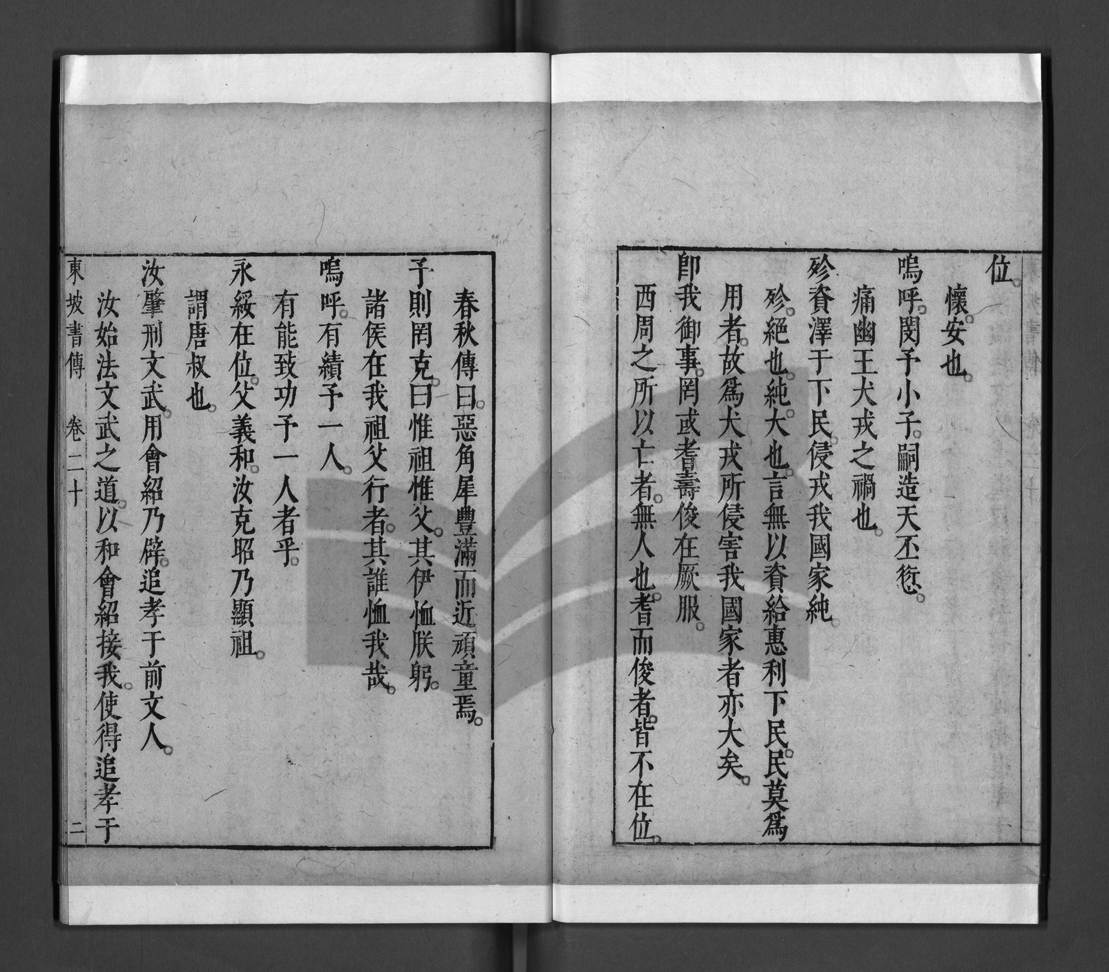 位。
懷。安也。
嗚呼。閔予小子。嗣造天丕愆。
痛幽王犬戎之禍也。
殄資澤于下民。侵戎我國家純。
殄。絕也。純。大也。言無以資給惠利下民。民莫爲
用者。故爲犬戎所侵害我國家者亦大矣。
卽我御事。罔或耆壽俊在厥服。
西周之所以亡者。無人也。耆而俊者。皆不在位。
春秋傳曰。惡角犀豐滿而近頑童焉。
予則罔克。曰惟祖惟父。其伊恤朕躬。
諸侯在我祖父行者。其誰恤我哉。
嗚呼。有績予一人。
有能致功予一人者乎。
永綏在位。父義和。汝克昭乃顯祖。
謂唐叔也。
汝肇刑文武。用會紹乃辟。追孝于前文人。
汝始法文武之道。以和會紹接我。使得追孝于
東坡書傳 卷二十 二